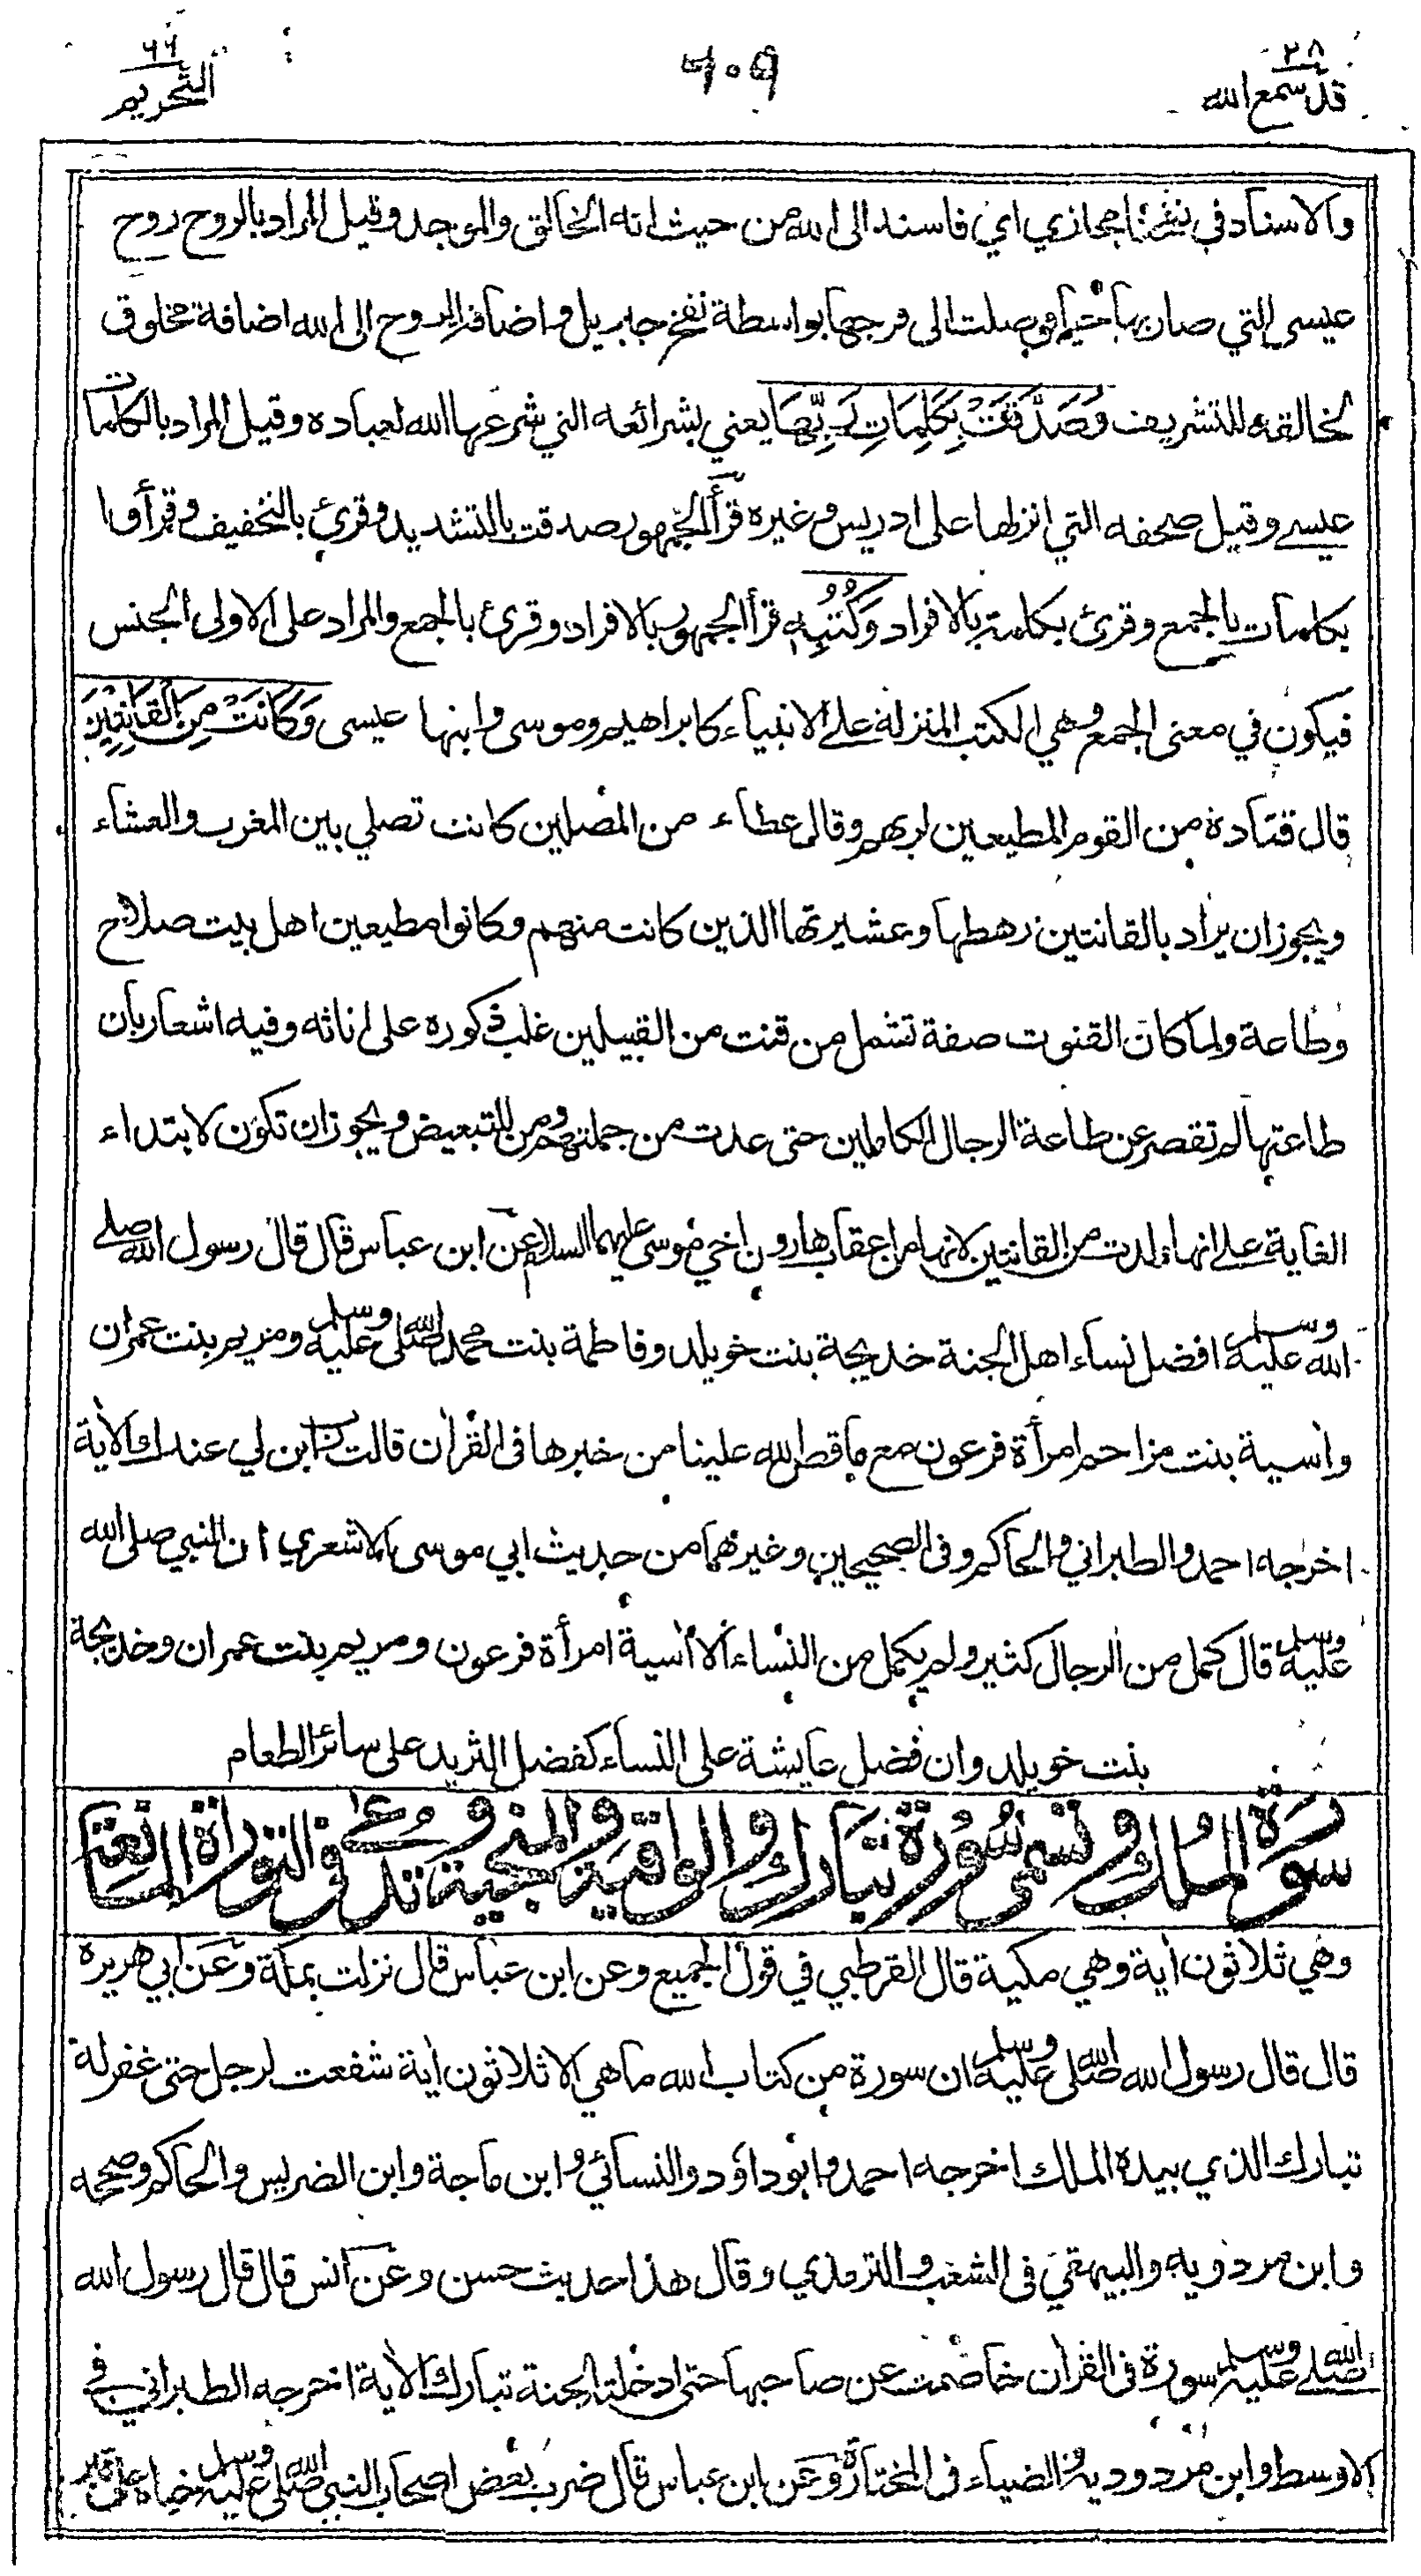 قد سمع الله ٢٨
٦٠٩
التحريم ٦٦
والاسناد في نفخنا مجازي اي فاسند الى الله من حيث انه الخالق والموجد وقيل المراد بالروح روح
عيسى التي صار بها حيا فوصلت الى فرجها بواسطة نفخ جبريل واضافة الروح الى الله اضافة مخلوق
لخالقه للتشريف وَصَدَّقَتْ بِكَلِمَاتِ رَبِّهَا يعني بشرائعه التي شرعها الله لعباده وقيل المراد بالكلمات
عيسى وقيل صحفه التي انزلها على ادريس وغيره قرأ الجمهور صدقت بالتشديد وقرئ بالتخفيف وقرأوا
بكلمات بالجمع وقرئ بكلمة بالافراد وَكُتُبِهِ قرأ الجمهور بالافراد وقرئ بالجمع والمراد على الاولى الجنس
فيكون في معنى الجمع وهي الكتب المنزلة على الانبياء كابراهيم وموسى وابنها عيسى وَكَانَتْ مِنَ الْقَانِتِينَ
قال قتادة من القوم المطيعين لربهم وقال عطاء من المصلين كانت تصلي بين المغرب والعشاء
ويجوز ان يراد بالقانتين رهطها وعشيرتها الذين كانت منهم وكانوا مطيعين اهل بيت صلاح
وطاعة ولما كان القنوت صفة تشمل من قنت من القبيلين غلب ذكوره على اناثه وفيه اشعار بان
طاعتها لم تقصر عن طاعة الرجال الكاملين حتى عدت من جملتهم ومن للتبعيض ويجوز ان تكون لابتداء
الغاية على انها ولدت من القانتين لانها من اعقاب هارون اخي موسى عليهما السلام عن ابن عباس قال قال رسول الله صلى
الله عليه وسلم افضل نساء اهل الجنة خديجة بنت خويلد وفاطمة بنت محمد صلى الله عليه وسلم ومريم بنت عمران
واسية بنت مزاحم امرأة فرعون مع ما قص الله علينا من خبرها فى القرأن قالت رب ابن لي عندك الأية
اخرجه احمد والطبراني والحاكم وفى الصحيحين وغيرهما من حديث ابي موسى الاشعري ان النبي صلى الله
عليه وسلم قال كمل من الرجال كثير ولم يكمل من النساء الا أسية امرأة فرعون ومريم بنت عمران وخديجة
بنت خويلد وان فضل عايشة على النساء كفضل الثريد على سائر الطعام
سورة الملك وتسمى سورة تبارك والواقية والمنجية وتدعى فى التوراة المانعة
وهي ثلاثون أية وهي مكية قال القرطبي في قول الجميع وعن ابن عباس قال نزلت بمكة وعن ابي هريرة
قال قال رسول الله صلى الله عليه وسلم ان سورة من كتاب الله ما هي الا ثلاثون أية شفعت لرجل حتى غفر له
تبارك الذي بيده الملك اخرجه احمد وابو داؤد والنسائي وابن ماجة وابن الضريس والحاكم وصححه
وابن مردويه والبيهقي فى الشعب والترمذي وقال هذا حديث حسن وعن انس قال قال رسول الله
صلى الله عليه وسلم سورة فى القرأن خاصمت عن صاحبها حتى ادخلته الجنة تبارك الأية اخرجه الطبراني في
الاوسط وابن مردوديه والضياء فى المختارة وعن ابن عباس قال ضرب بعض اصحاب النبي صلى الله عليه وسلم خباه على قبر